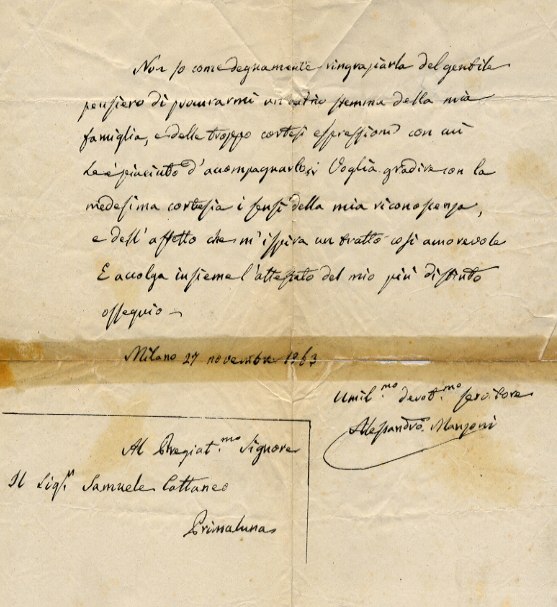 Non so come degnamente ringraziarla del gentile
pensiero di procurarmi un altro stemma della mia
famiglia, e delle troppo cortesi espressioni con cui
Le è piaciuto d'accompagnarlo. Voglia gradire con la
medesima cortesia i sensi della mia riconoscenza,
e dell'affetto che m'ispira un tratto così amorevole
E accolga insieme l'attestato del mio più distinto
ossequio —
Milano 27 novembre 1863
Umil.mo devot.mo servitore
Alessandro Manzoni
Al Pregiat.mo Signore
Il Sigr. Samuele Cattaneo
Primaluna